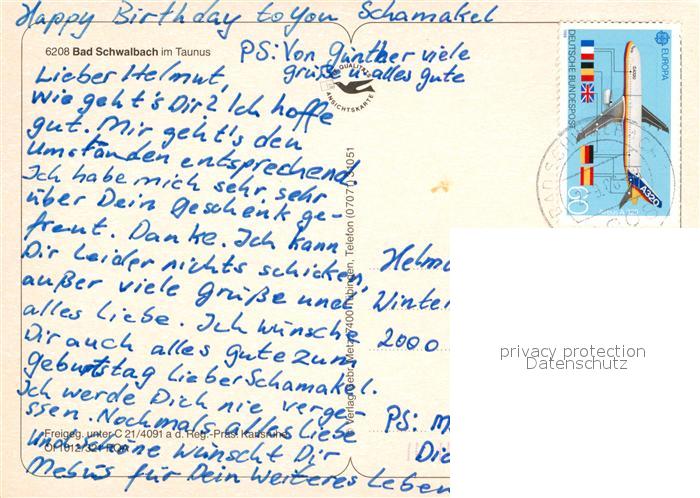 Happy Birthday to You Schamakel
6208 Bad Schwalbach im Taunus
PS: Von Günther viele
grüße u. alles gute
QUALITÄTS
ANSICHTSKARTE
Lieber Helmut,
wie geht's Dir? Ich hoffe
gut. Mir geht's den
Umständen entsprechend
Ich habe mich sehr sehr
über Dein Geschenk ge-
freut. Danke. Ich kann
Dir Leider nichts schicken,
außer viele Grüße und
alles Liebe. Ich wünsche
Dir auch alles gute zum
Geburtstag Lieber Schamakel.
Ich werde Dich nie verge-
ssen. Nochmals alles Liebe
und schöne wünscht Dir
Mebus für Dein weiteres Leben
Freigeg. unter C 21/4091 a d. Reg.-Präs. Karlsruhe
Verlag Gebr. Metz, 7400 Tübingen, Telefon (07071)
EUROPA
DEUTSCHE BUNDESPOST
A320
60
BAD SCHWALBACH
Helmu
Winter
2000
PS: M
Dic
privacy protection
Datenschutz